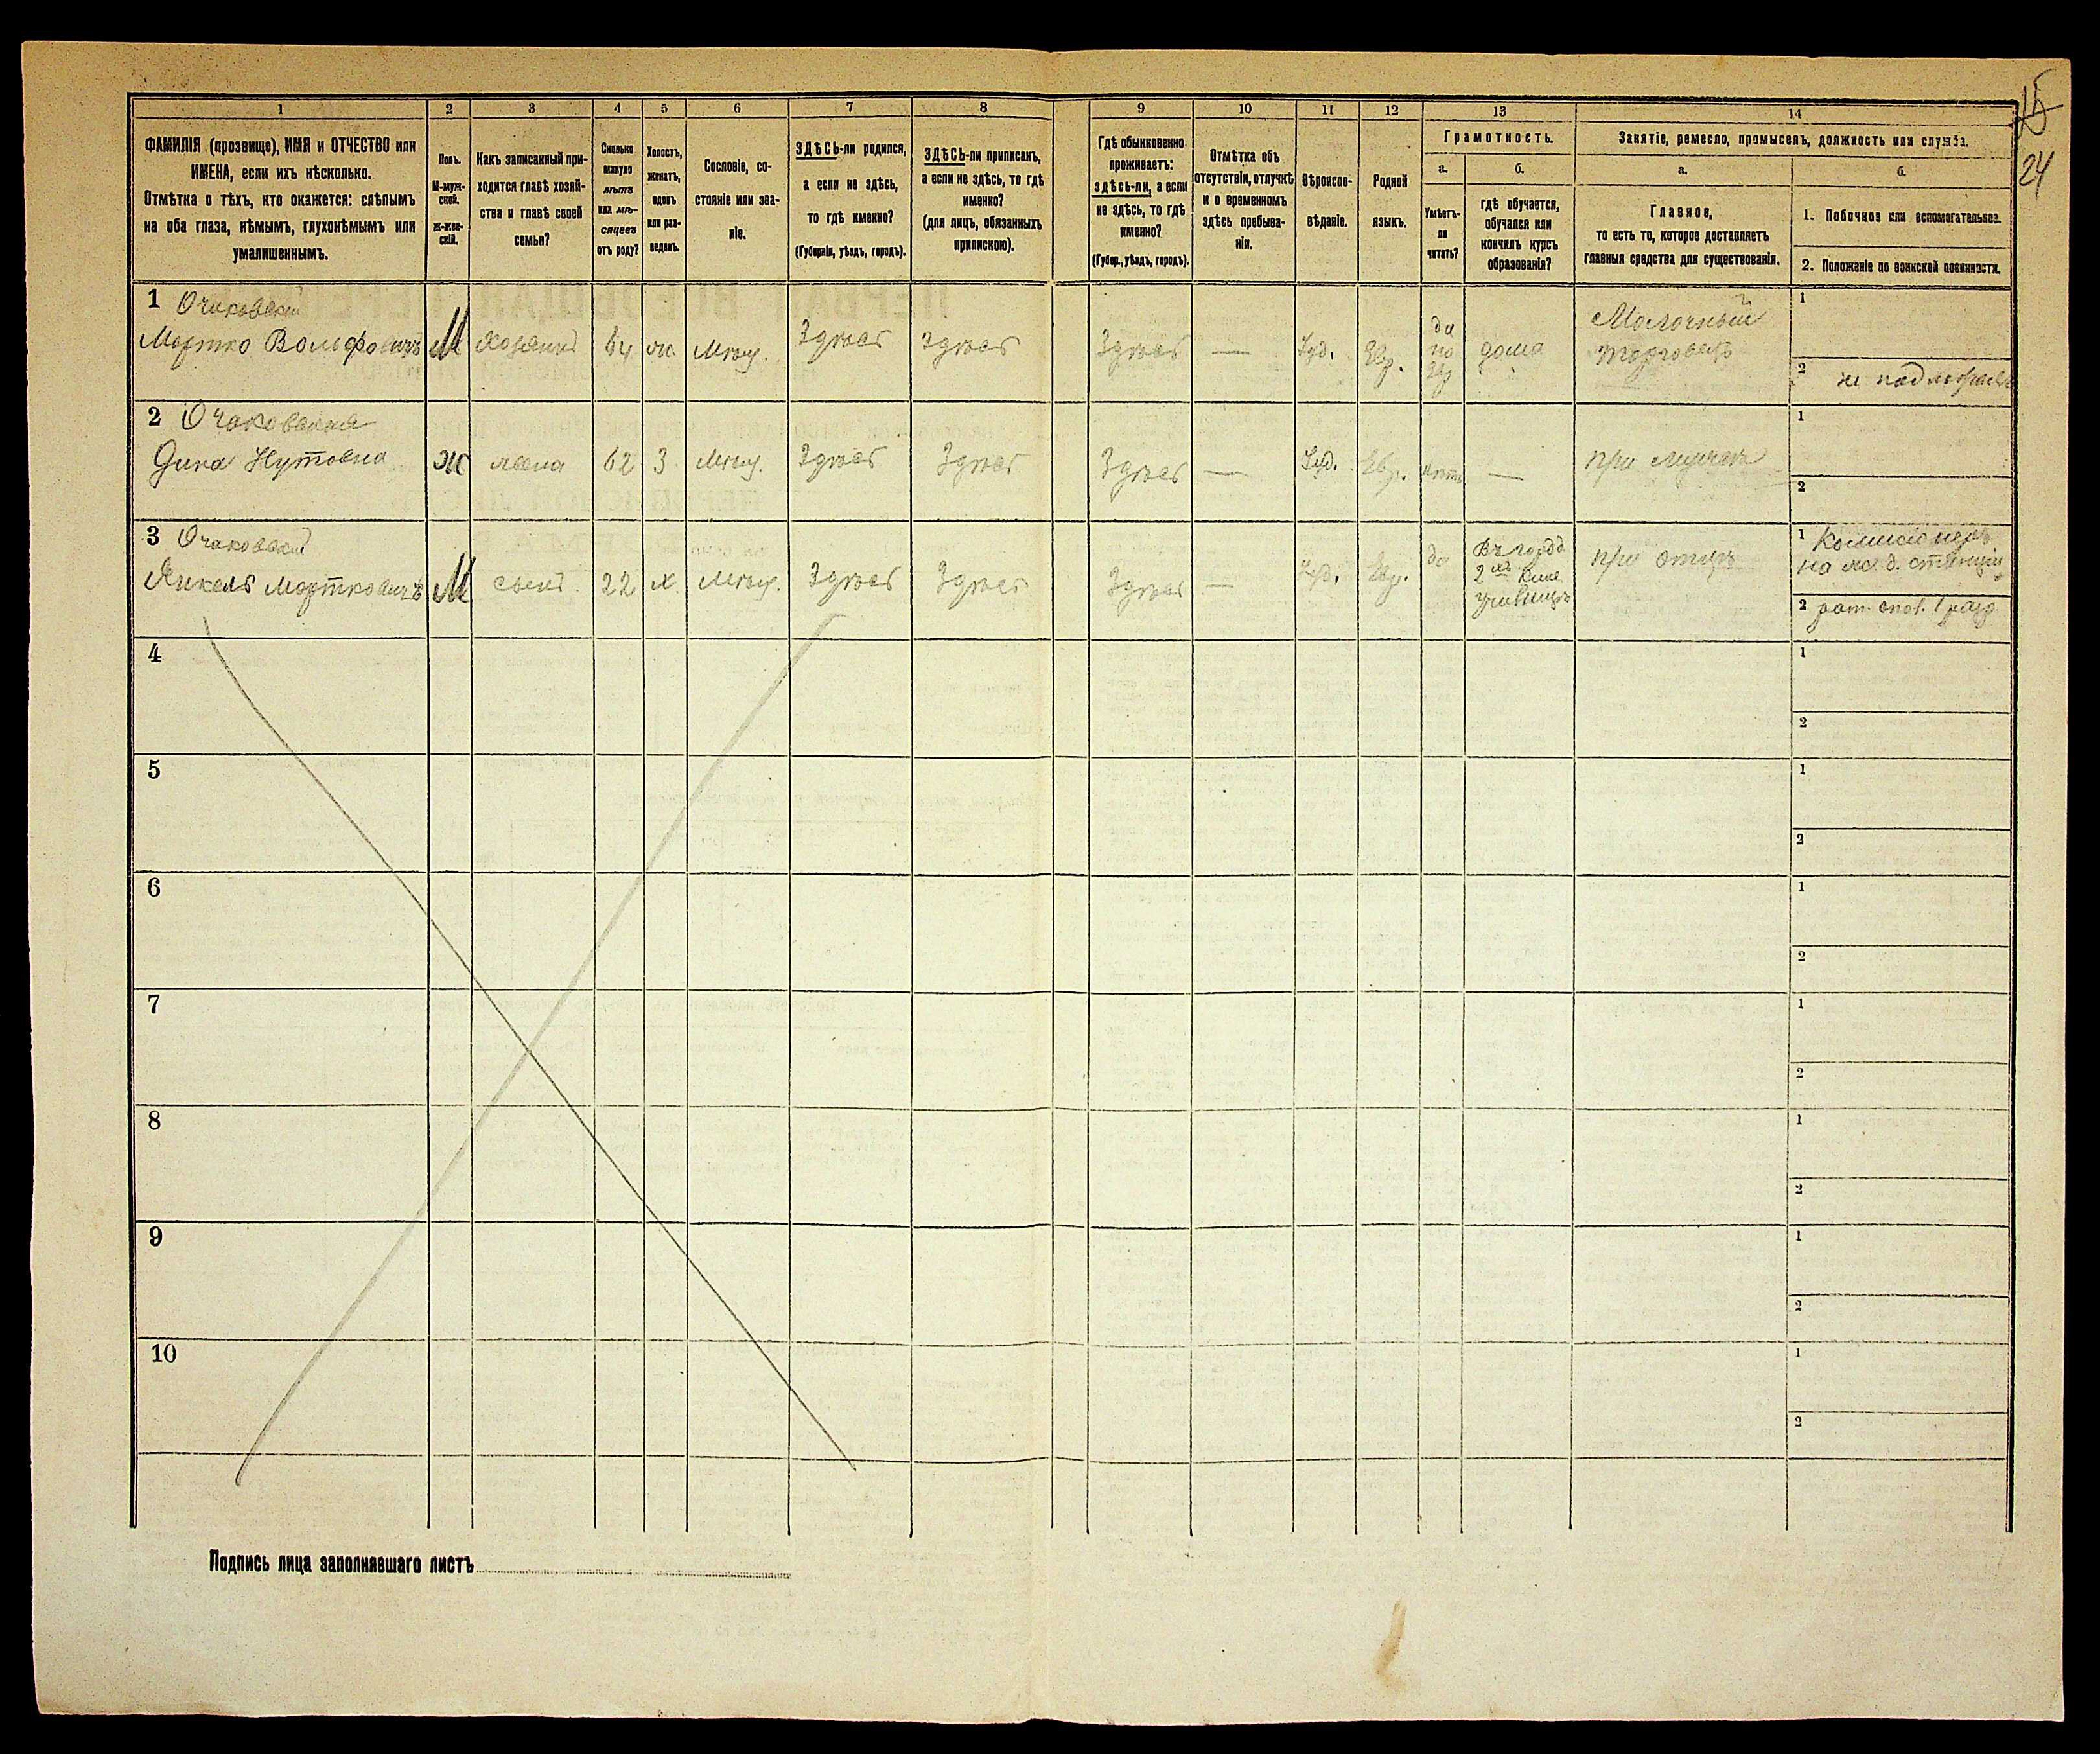 15
24
1
2
3
4
5
6
7
8
9
10
11
12
13
14
ФАМИЛІЯ (прозвище), ИМЯ и ОТЧЕСТВО или
ИМЕНА, если ихъ нѣсколько.
Отмѣтка о тѣхъ, кто окажется: слѣпымъ
на оба глаза, нѣмымъ, глухонѣмымъ или
умалишеннымъ.
Полъ.
М-муж-
ской.
Ж-жен-
скій.
Какъ записанный при-
ходится главѣ хозяй-
ства и главѣ своей
семьи?
Сколько
минуло
лѣтъ
или мѣ-
сяцевъ
отъ роду?
Холостъ,
женатъ,
вдовъ
или раз-
веденъ.
Сословіе, со-
стояніе или зва-
ніе.
ЗДѢСЬ-ли родился,
а если не здѣсь,
то гдѣ именно?
(Губернія, уѣздъ, городъ).
ЗДѢСЬ-ли приписанъ,
а если не здѣсь, то гдѣ
именно?
(для лицъ, обязанныхъ
припискою).
Гдѣ обыкновенно
проживаетъ:
здѣсь-ли, а если
не здѣсь, то гдѣ
именно?
(Губер., уѣздъ, городъ).
Отмѣтка объ
отсутствіи, отлучкѣ
и о временномъ
здѣсь пребыва-
ніи.
Вѣроиспо-
вѣданіе.
Родной
языкъ.
Грамотность.
а.
Умѣетъ-
ли
читать?
б.
гдѣ обучается,
обучался или
кончилъ курсъ
образованія?
Занятіе, ремесло, промыселъ, должность или служба.
а.
Главное,
то есть то, которое доставляетъ
главныя средства для существованія.
б.
1. Побочное или вспомогательное.
2. Положеніе по воинской повинности.
1 Очаковскій
Мортко Вольфовичъ
М
Хозяинъ
64
ж.
Мѣщ.
Здѣсь
Здѣсь
Здѣсь
—
Іуд.
Евр.
да
по
Евр
дома
Молочный
торговецъ
1
2 не подлежитъ
2 Очаковская
Дина Нутовна
Ж
жена
62
З
Мѣщ.
Здѣсь
Здѣсь
Здѣсь
—
Іуд.
Евр.
нѣтъ
—
при мужѣ
1
2
3 Очаковскій
Янкель Мортковичъ
М
сынъ
22
х
Мѣщ.
Здѣсь
Здѣсь
Здѣсь
—
Іуд.
Евр.
да
2 хъ клас
училищѣ
при отцѣ
1 Комисіонеръ
на ж. д. станціи
2 рат. опол. 1 разр
4
1
2
5
1
2
6
1
2
7
1
2
8
1
2
9
1
2
10
1
2
Подпись лица заполнявшаго листъ